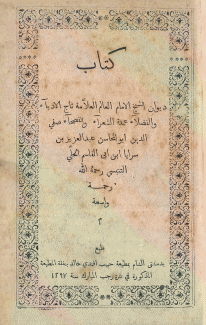 كتاب
ديوان الشيخ الامام العالم العلامة تاج الادباء
والفضلاء عمدة الشعراء والفصحاء صفي
الدين ابو المحاسن عبد العزيز بن
سرايا ابن ابي القاسم الحلي
التنبسي رحمه الله
رحمة
واسعة
م
طبع
بدمشق الشام بمطبعة حبيب افندي خالد بنفقة المطبعة
المذكورة في غرة رجب المبارك سنة ١٢٩٧